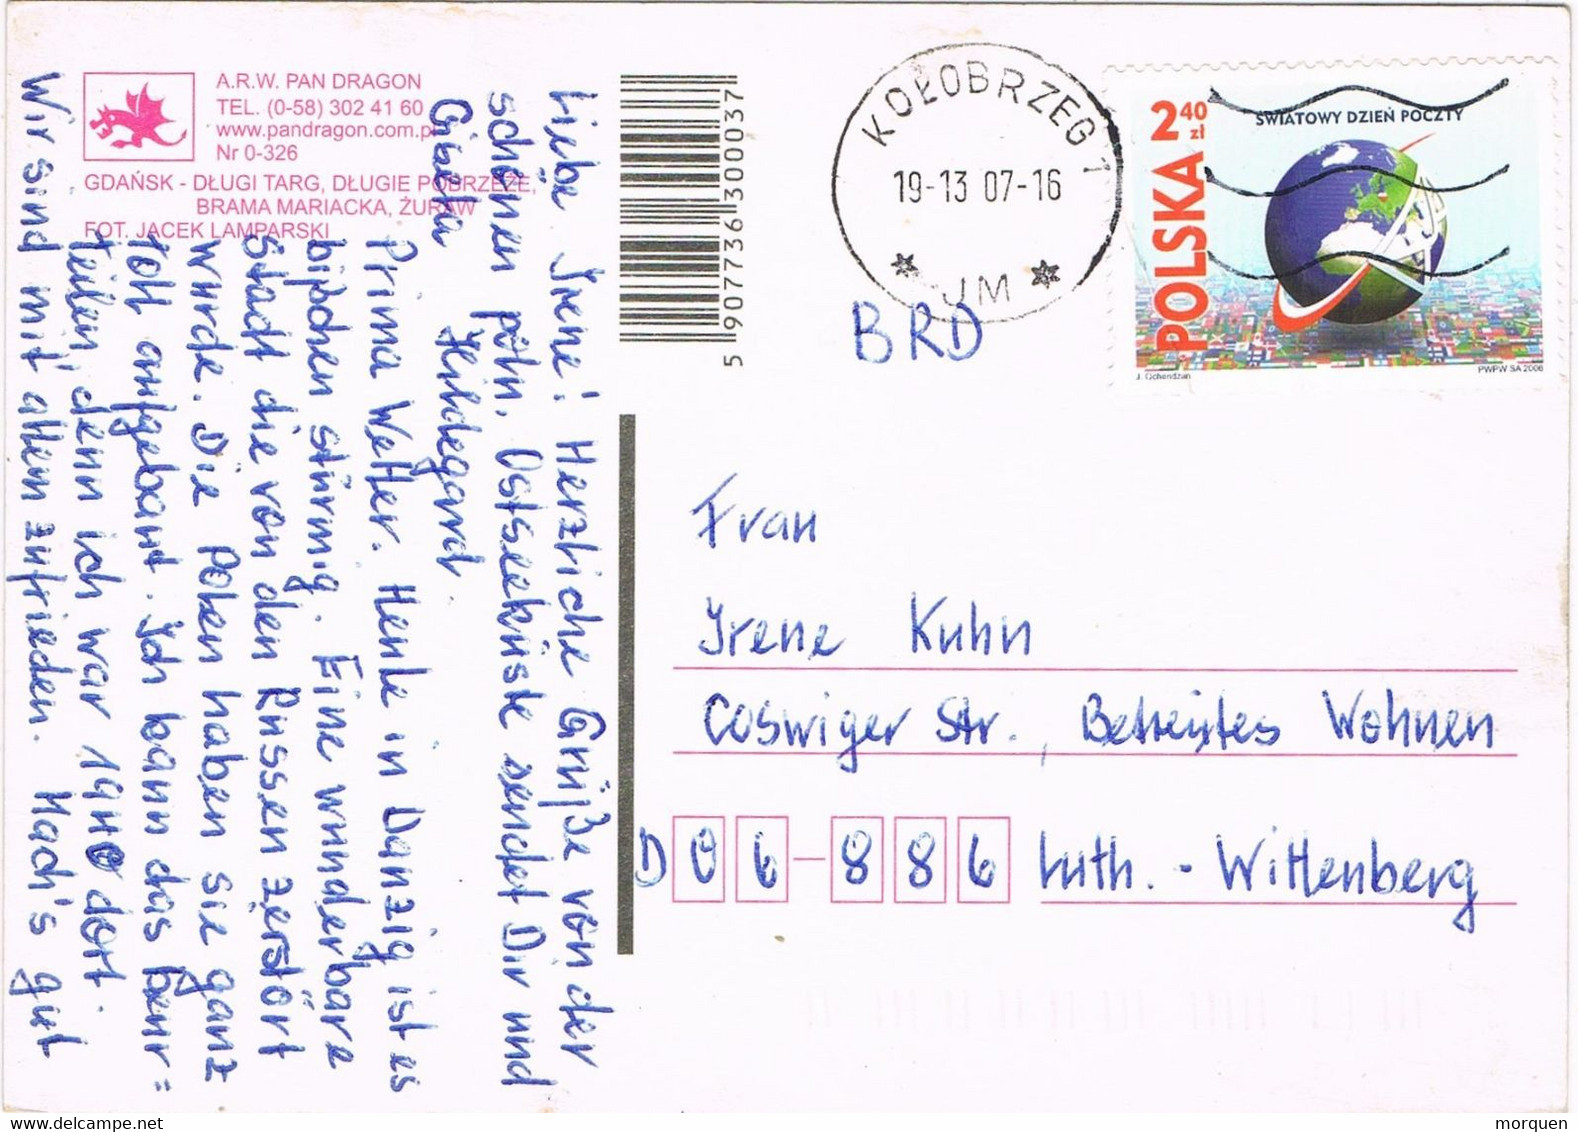 A.R.W. PAN DRAGON
TEL. (0-58) 302 41 60
www.pandragon.com.pl
Nr 0-326
GDAŃSK - DŁUGI TARG, DŁUGIE POBRZEŻE,
BRAMA MARIACKA, ŻURAW
FOT. JACEK LAMPARSKI
Liebe Irene! Herzliche Grüße von der
schönen poln. Ostseeküste sendet Dir und
Gisela Hildegard.
Prima Wetter. Heute in Danzig ist es
bißchen stürmig. Eine wunderbare
Stadt die von den Russen zerstört
wurde. Die Polen haben sie ganz
toll aufgebaut. Ich kann das beur=
teilen, denn ich war 1940 dort.
Wir sind mit allem zufrieden. Mach's gut
5 907736 300037
KOŁOBRZEG 1
19-13 07-16
* JM *
2 40 zł
ŚWIATOWY DZIEŃ POCZTY
POLSKA
J. Ochendzan
PWPW SA 2006
BRD
Frau
Irene Kuhn
Coswiger Str., Betreutes Wohnen
D 06-886 Luth. - Wittenberg
morquen